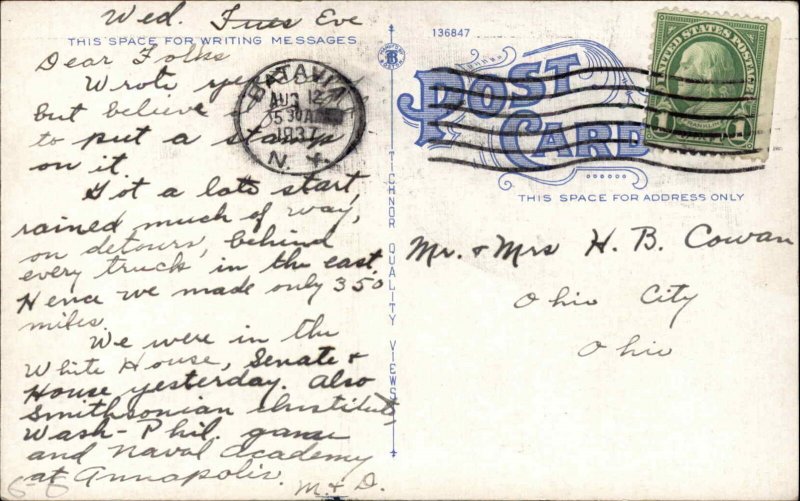 Wed. Tues Eve
THIS SPACE FOR WRITING MESSAGES
Dear Folks
Wrote
but believe
to put a stamp
on it.
Got a late start,
rained much of way,
on detours, behind
every truck in the east.
Hence we made only 350
miles.
We were in the
White House, Senate &
House yesterday. Also
Smithsonian Institute,
Wash-Phil. game
and Naval Academy
at Annapolis.
M. & D.
BATAVIA
AUG 12
5 30 A
1937
N. Y.
TICHNOR QUALITY VIEWS
136847
POST CARD
THIS SPACE FOR ADDRESS ONLY
UNITED STATES POSTAGE
1 FRANKLIN 1
Mr. & Mrs H. B. Cowan
Ohio City
Ohio